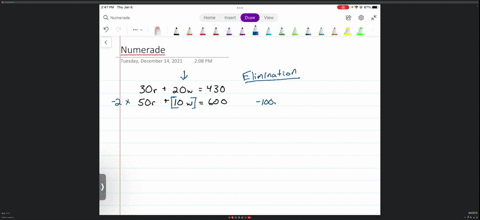 2:41 PM Thu Jan 6
Numerade
Home Insert Draw View
Numerade
Tuesday, December 14, 2021 2:08 PM
↓ Elimination
30r + 20w = 430
-2 × 50r + [10w] = 600 -100r